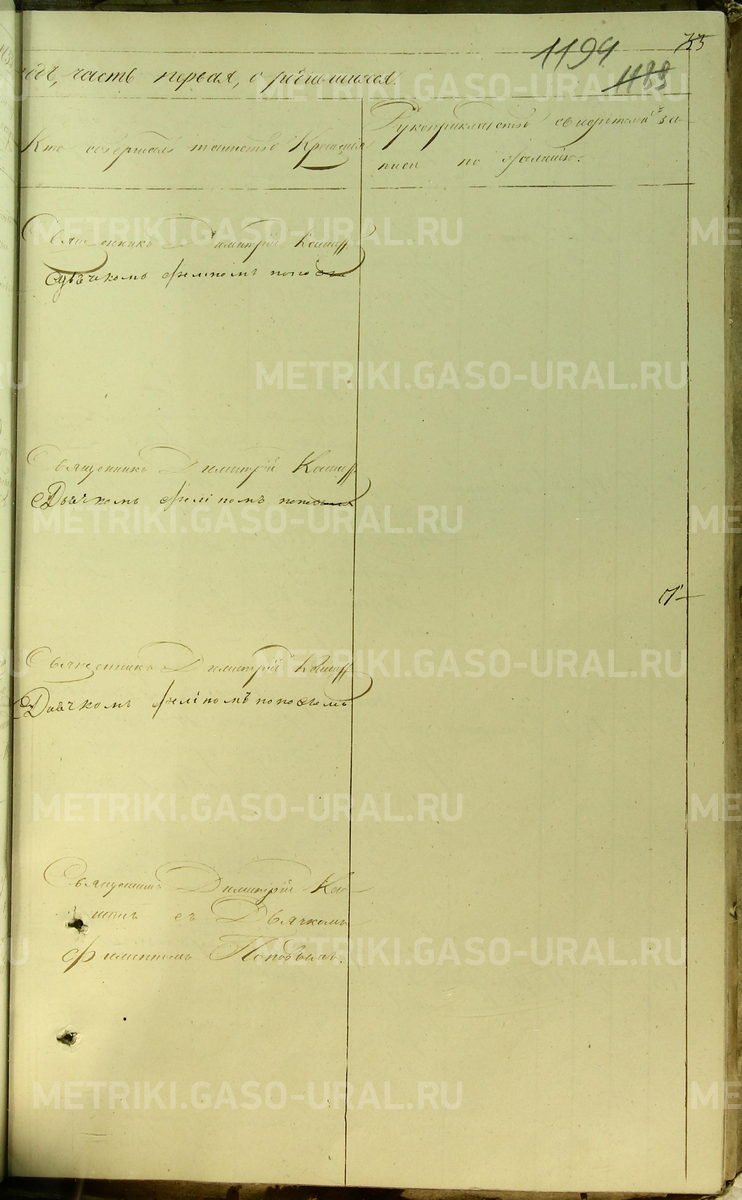 1194
1189
годъ, часть первая, о родившихся.
Кто совершалъ таинство Крещенія
Рукоприкладство свидѣтелей за-
писи по желанію.
Священникъ Димитрій
Съ дьячкомъ Филипомъ Поповымъ
Священникъ Димитрій
Съ Дьячкомъ Филіпомъ Поповымъ
Священникъ Димитрій
Съ Дьячкомъ Филіпомъ Поповымъ
Священникъ Димитрій
съ Дьячкомъ
Филиппомъ Поповымъ.
METRIKI.GASO-URAL.RU